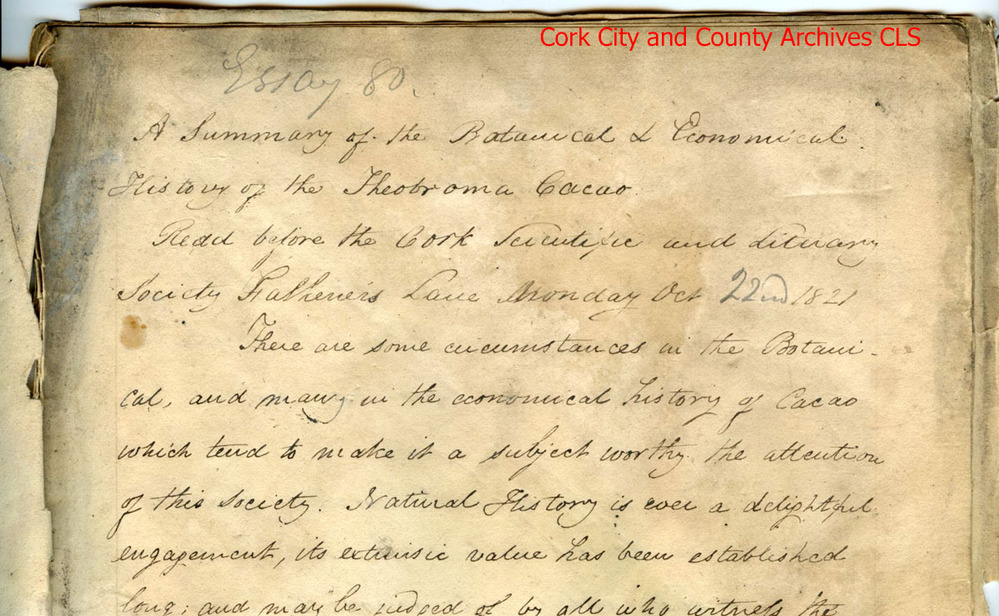 Cork City and County Archives CLS
Essay 80.
A Summary of the Botanical & Economical
History of the Theobroma Cacao.
Read before the Cork Scientific and Literary
Society Falkener's Lane Monday Oct 22nd 1821
There are some circumstances in the Botani-
cal, and many in the economical history of Cacao
which tend to make it a subject worthy the attention
of this Society. Natural History is ever a delightful
engagement, its extrinsic value has been established
long; and may be judged of by all who witness the